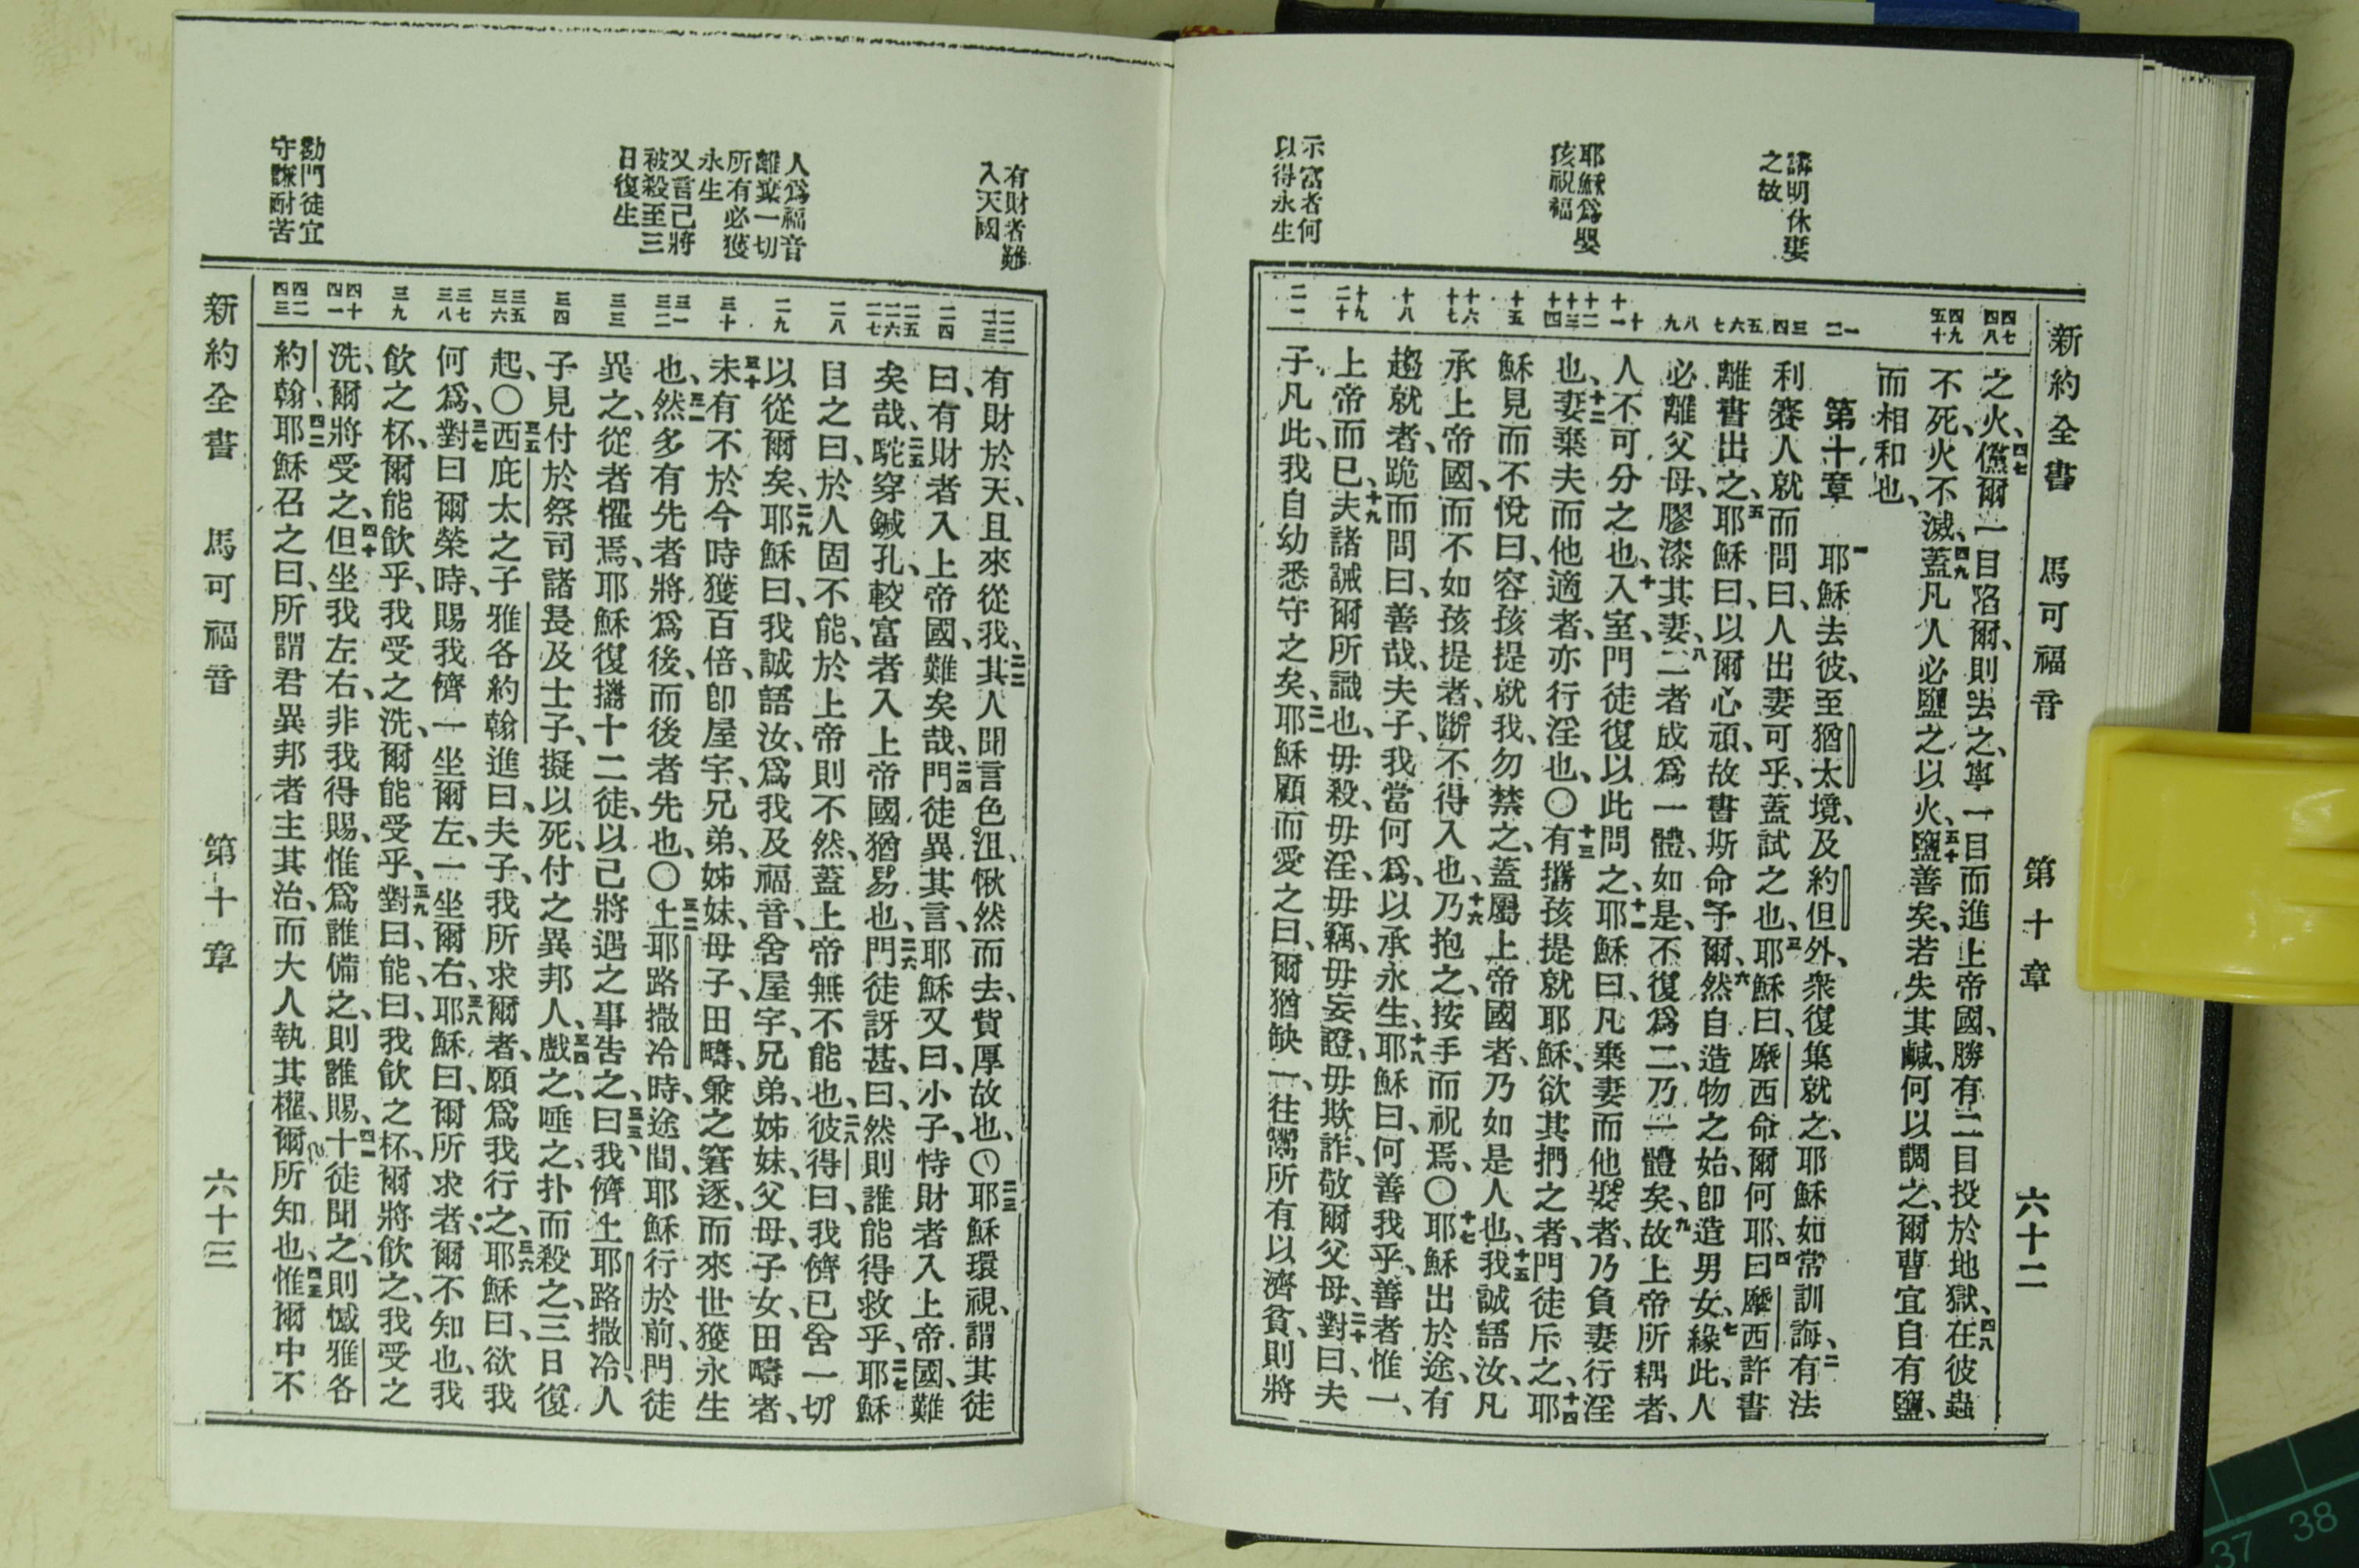 新約全書 馬可福音 第十章 六十二
講明休妻
之故
耶穌爲嬰
孩祝福
示富者何
以得永生
四七
四八
四九
五十
一
二
三
四
五
六
七
八
九
十
十一
十二
十三
十四
十五
十六
十七
十八
十九
二十
二一
之火、四七儻爾一目陷爾、則去之、寧一目而進上帝國、勝有二目投於地獄、四八在彼蟲
不死、火不滅、四九蓋凡人必鹽之以火、五十鹽善矣、若失其鹹、何以調之、爾曹宜自有鹽、
而相和也、
第十章 一耶穌去彼、至猶太境、及約但外、衆復集就之、耶穌如常訓誨、二有法
利賽人就而問曰、人出妻可乎、蓋試之也、三耶穌曰、摩西命爾何耶、四曰、摩西許書
離書出之、五耶穌曰、以爾心頑、故書斯命予爾、六然自造物之始、卽造男女、七緣此、人
必離父母、膠漆其妻、八二者成爲一體、如是、不復爲二、乃一體矣、九故上帝所耦者、
人不可分之也、十入室、門徒復以此問之、十一耶穌曰、凡棄妻而他娶者、乃負妻行淫
也、十二妻棄夫而他適者、亦行淫也、〇十三有攜孩提就耶穌、欲其捫之者、門徒斥之、十四耶
穌見而不悅曰、容孩提就我、勿禁之、蓋屬上帝國者、乃如是人也、十五我誠語汝、凡
承上帝國、而不如孩提者、斷不得入也、十六乃抱之、按手而祝焉、〇十七耶穌出於途、有
趨就者、跪而問曰、善哉、夫子、我當何爲、以承永生、十八耶穌曰、何善我乎、善者惟一、
上帝而已、十九夫諸誡爾所識也、毋殺、毋淫、毋竊、毋妄證、毋欺詐、敬爾父母、二十對曰、夫
子凡此、我自幼悉守之矣、二一耶穌顧而愛之曰、爾猶缺一、往鬻所有以濟貧、則將
有財者難
入天國
人爲福音
離棄一切
所有必獲
永生
又言己將
被殺至三
日復生
勸門徒宜
守謙耐苦
二二
二三
二四
二五
二六
二七
二八
二九
三十
三一
三二
三三
三四
三五
三六
三七
三八
三九
四十
四一
四二
四三
有財於天、且來從我、二二其人聞言色沮、愀然而去、貲厚故也、〇二三耶穌環視、謂其徒
曰、有財者入上帝國、難矣哉、二四門徒異其言、耶穌又曰、小子、恃財者入上帝國、難
矣哉、二五駝穿鍼孔、較富者入上帝國猶易也、二六門徒訝甚、曰、然則誰能得救乎、二七耶穌
目之曰、於人固不能、於上帝則不然、蓋上帝無不能也、二八彼得曰、我儕已舍一切
以從爾矣、二九耶穌曰、我誠語汝、爲我及福音、舍屋宇、兄弟、姊妹、父母、子女、田疇者、
三十未有不於今時獲百倍、卽屋宇、兄弟、姊妹、母子、田疇、兼之窘逐、而來世獲永生
也、三一然多有先者將爲後、而後者先也、〇三二上耶路撒冷時、途間、耶穌行於前、門徒
異之、從者懼焉、耶穌復攜十二徒、以己將遇之事告之、三三曰、我儕上耶路撒冷、人
子見付於祭司諸長及士子、擬以死、付之異邦人、三四戲之、唾之、扑而殺之、三日復
起、〇三五西庇太之子雅各約翰進曰、夫子、我所求爾者、願爲我行之、三六耶穌曰、欲我
何爲、三七對曰、爾榮時、賜我儕一坐爾左、一坐爾右、三八耶穌曰、爾所求者、爾不知也、我
飲之杯、爾能飲乎、我受之洗、爾能受乎、三九對曰、能、曰、我飲之杯、爾將飲之、我受之
洗、爾將受之、四十但坐我左右、非我得賜、惟爲誰備之、則誰賜、四一十徒聞之、則憾雅各
約翰、四二耶穌召之曰、所謂君異邦者主其治、而大人執其權、爾所知也、四三惟爾中不
新約全書 馬可福音 第十章 六十三
37 38